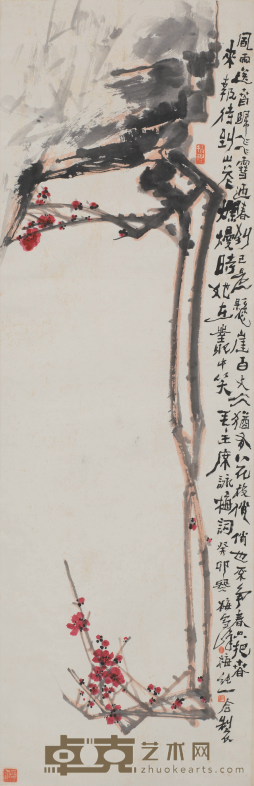 風雨送春歸飛雪迎春到已是懸崖百丈冰猶有花枝俏俏也不爭春只把春
來報待到山花爛熳時她在叢中笑毛主席詠梅詞癸卯
合製
卓克艺术网
zhuokearts.com